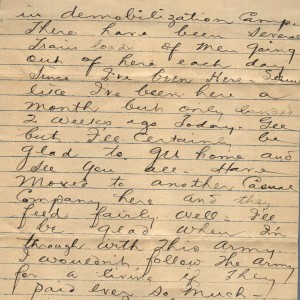 in demobilization Camp.
There have been several
train loads of men going
out of here each day
since I've been Here. Seems
like I've been here a
month but only landed
2 weeks ago Today. Gee
but I'll Certainly be
glad to get home and
see you all. Have
Moved to another Casual
Company here and they
feed fairly well. I'll
be glad when I'm
through with This Army
I wouldn't follow The Army
for a living if They
paid ever so much-